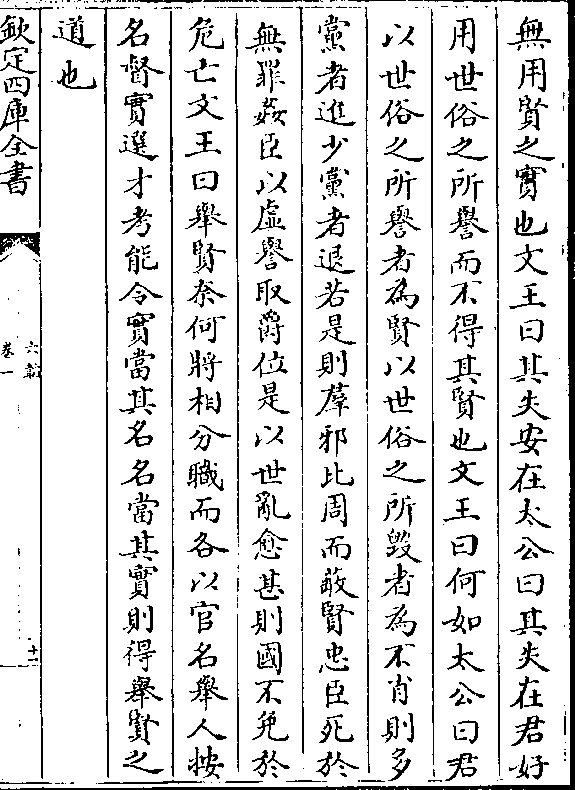 無用賢之實也文王曰其失安在太公曰其失在君好
用世俗之所譽而不得其賢也文王曰何如太公曰君
以世俗之所譽者為賢以世俗之所毀者為不肖則多
黨者進少黨者退若是則羣邪比周而蔽賢忠臣死於
無罪姦臣以虛譽取爵位是以世亂愈甚則國不免於
危亡文王曰舉賢奈何將相分職而各以官名舉人按
名督實選才考能令實當其名名當其實則得舉賢之
道也
欽定四庫全書
六韜
卷一
十二